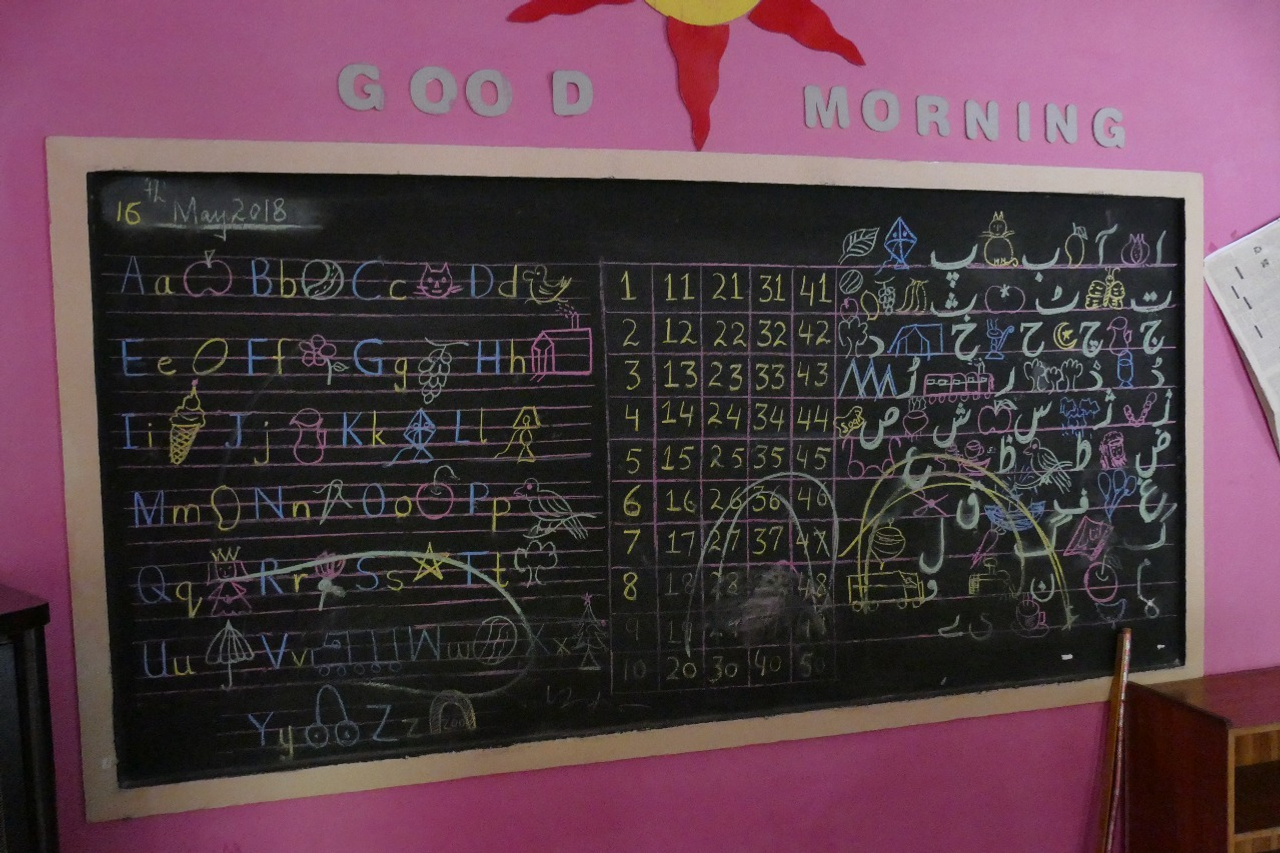 GOOD MORNING
16th May 2018
Aa Bb Cc Dd
Ee Ff Gg Hh
Ii Jj Kk Ll
Mm Nn Oo Pp
Qq Rr Ss Tt
Uu Vv Ww Xx
Yy Zz
1 11 21 31 41
2 12 22 32 42
3 13 23 33 43
4 14 24 34 44
5 15 25 35 45
6 16 26 36 46
7 17 27 37 47
8 18 28 48
9
10 20 30 40 50
ا آ ب پ
ت ٹ ث
ج چ ح خ د
ڈ ذ ر ڑ
ز ژ س ش ص
ض ط ظ ع
غ ف ق
ک گ ل
م ن و
ی ے